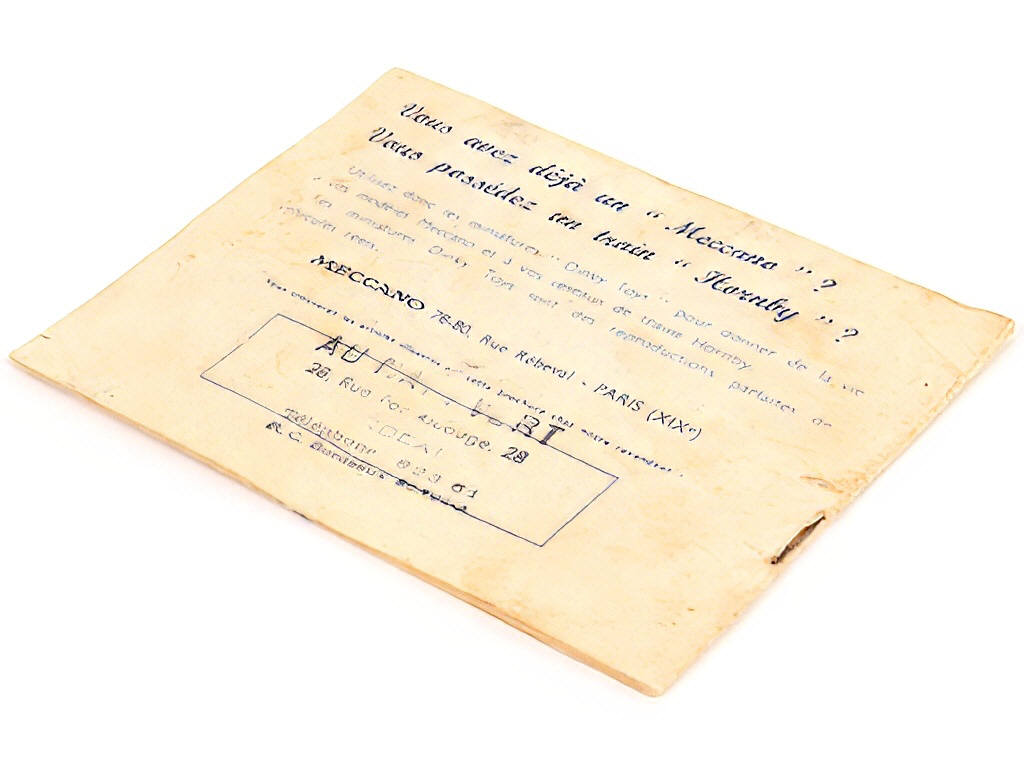 Vous avez déjà un " Meccano " ?
Vous possédez un train " Hornby " ?
Utilisez donc les miniatures " Dinky Toys " pour donner de la vie
à vos modèles Meccano et à vos réseaux de trains Hornby.
Les miniatures Dinky Toys sont des reproductions parfaites de
véhicules réels.
MECCANO 78-80, Rue Rébeval - PARIS (XIXᵉ)
Vous trouverez les articles dans cette brochure chez votre revendeur :
AU
28, Rue 28
Téléphone 61
R. C. Bordeaux